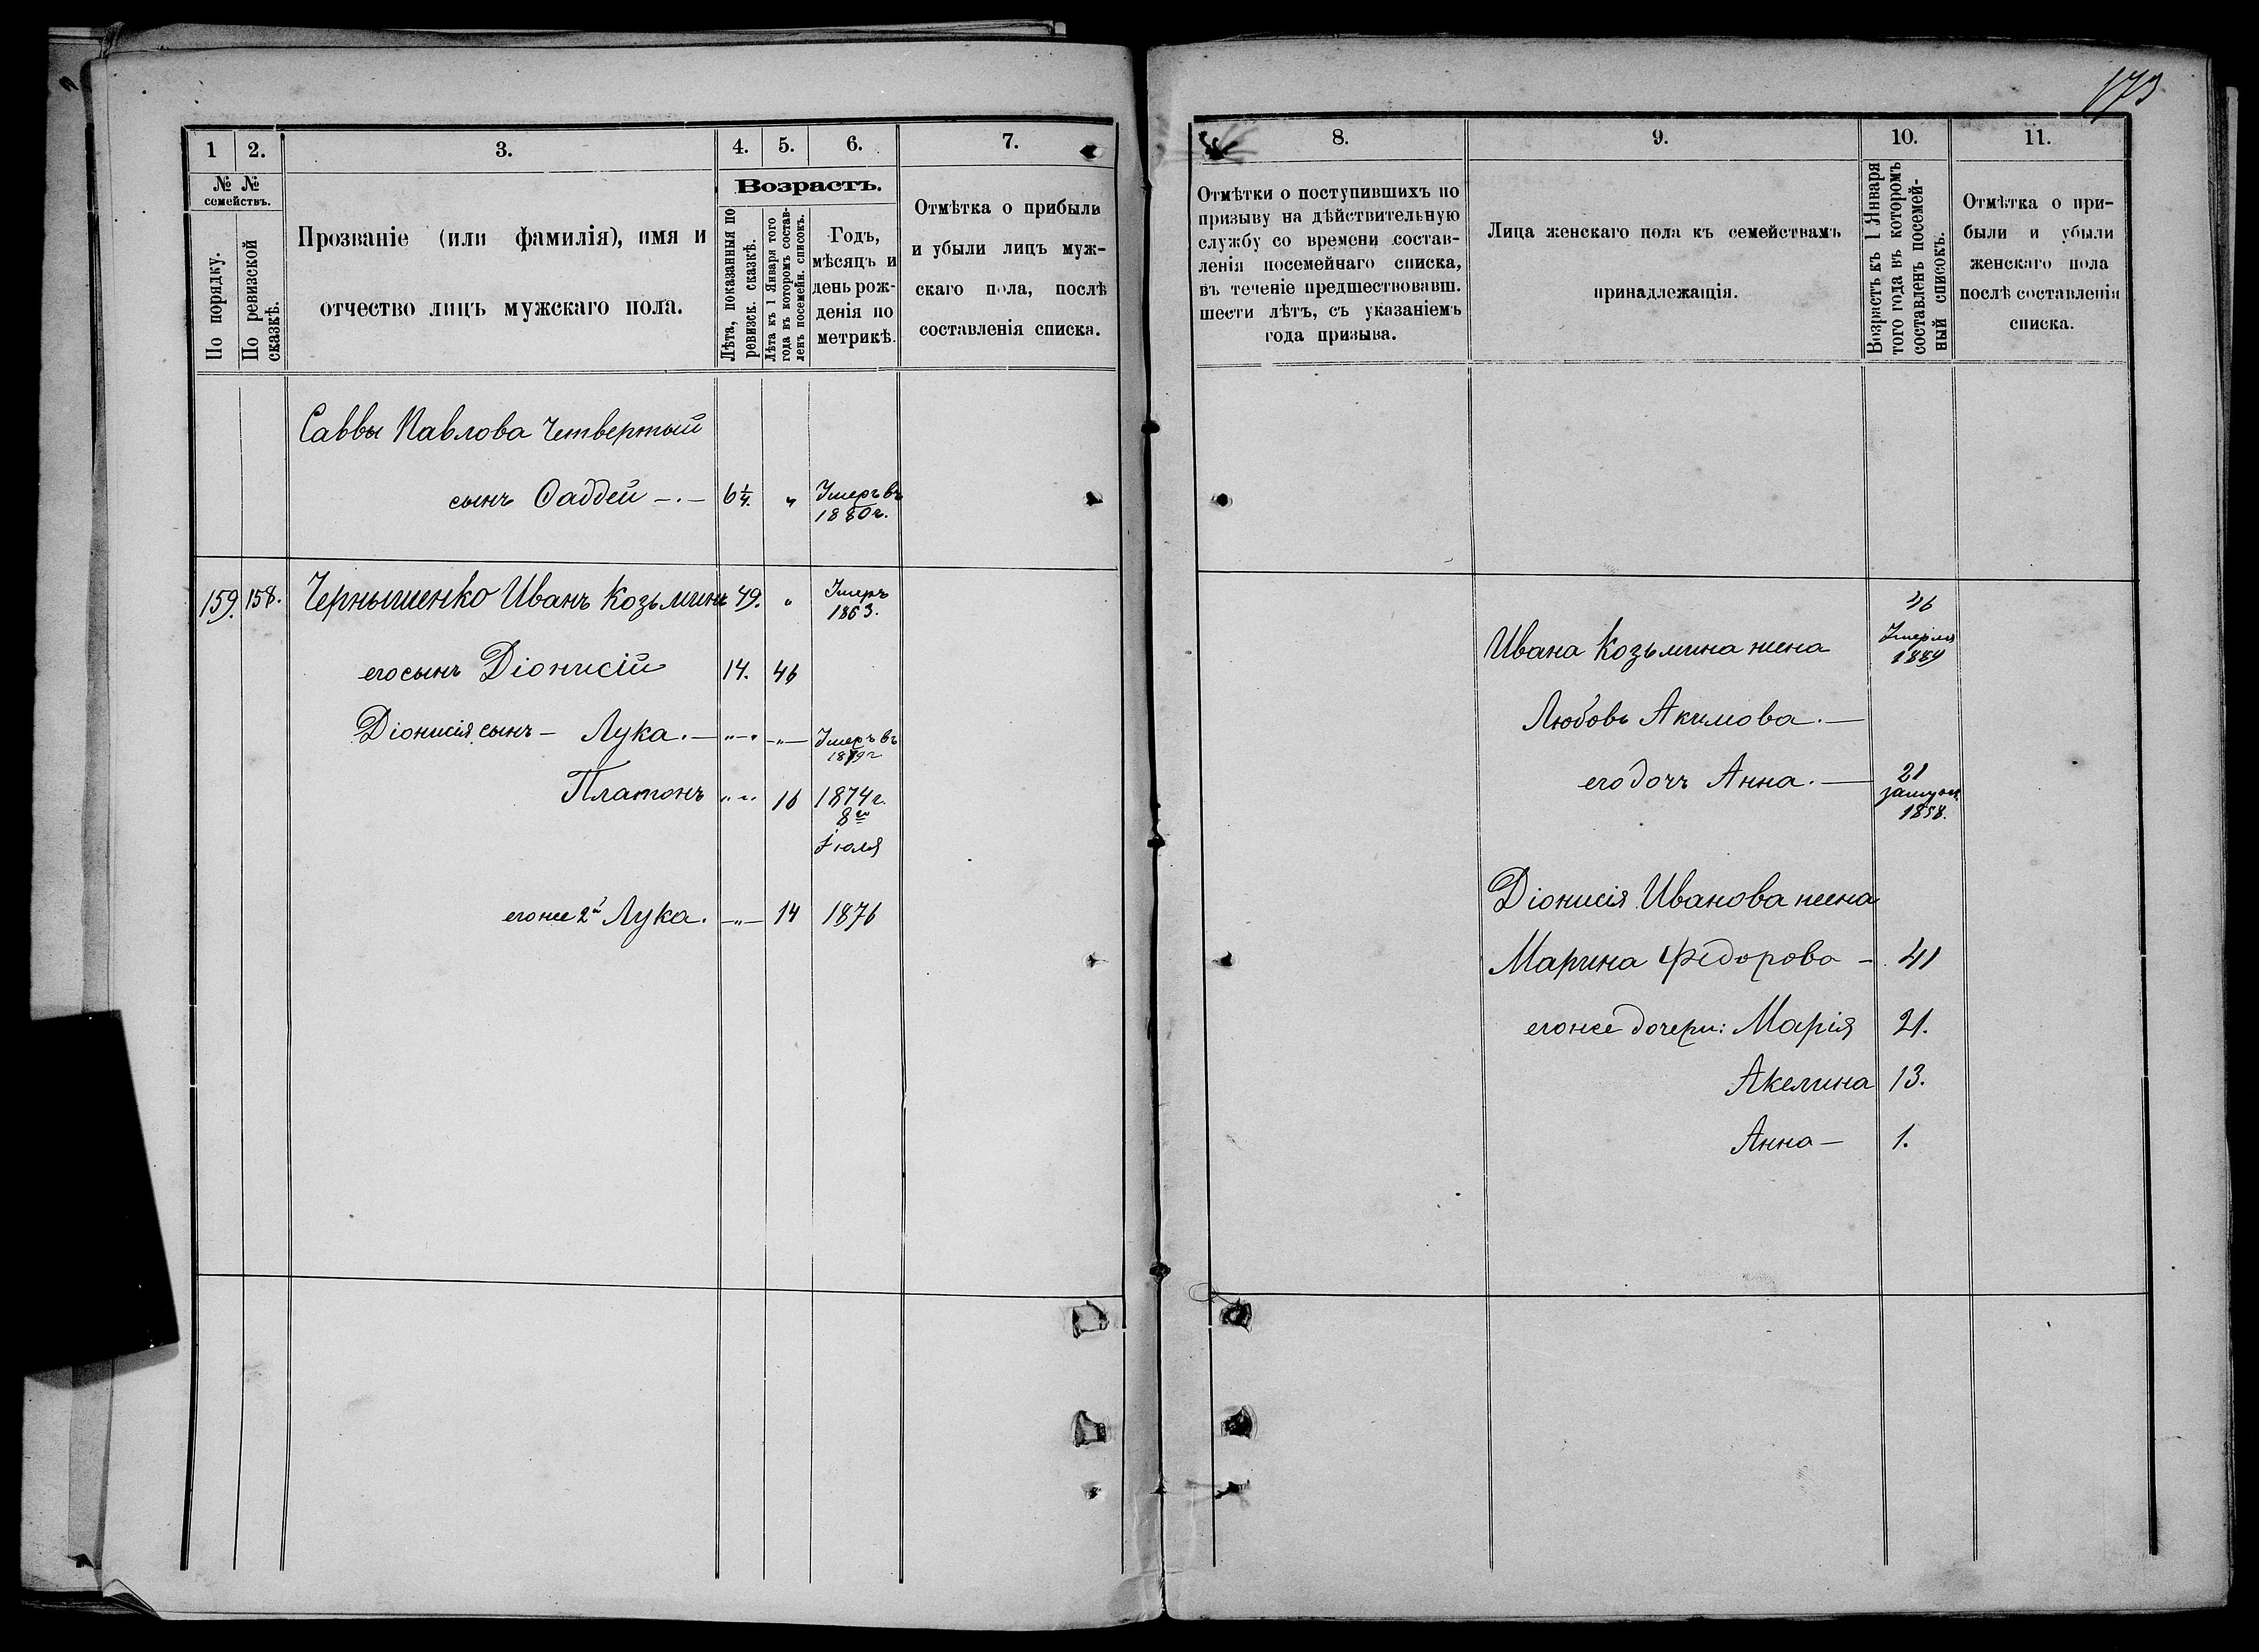 173
1 2. 3. 4. 5. 6. 7.
№ №
семействъ.
По порядку.
По ревизской
сказкѣ.
Прозваніе (или фамилія), имя и
отчество лицъ мужскаго пола.
Возрастъ.
Лѣта, показанныя по
ревизск. сказкѣ.
Лѣта къ 1 Января того
года въ которомъ состав-
ленъ посемейн. списокъ.
Годъ,
мѣсяцъ и
день рож-
денія по
метрикѣ.
Отмѣтка о прибыли
и убыли лицъ муж-
скаго пола, послѣ
составленія списка.
Саввы Павлова Четвертый
сынъ Фаддей —.— 6¼. „ Умеръ въ
1880 г.
159. 158. Чернышенко Иванъ Козьминъ 49. „ Умеръ
1863.
его сынъ Діонисій 14. 46
Діонисія сынъ — Лука. — „ — „ — Умеръ въ
1879 г
Платонъ „ „ 16 1874 г.
8го
Іюля
его же 2й Лука. — „ — 14 1876
8. 9. 10. 11.
Отмѣтки о поступившихъ по
призыву на дѣйствительную
службу со времени состав-
ленія посемейнаго списка,
въ теченіе предшествовавш.
шести лѣтъ, съ указаніемъ
года призыва.
Лица женскаго пола къ семействамъ
принадлежащія.
Возрастъ къ 1 Января
того года въ которомъ
составленъ посемей-
ный списокъ.
Отмѣтка о при-
были и убыли
женскаго пола
послѣ составленія
списка.
46
Ивана Козьмина жена Умерла
1889
Любовь Акимова. —
его дочь Анна. — 21
замуж.
1858.
Діонисія Иванова жена
Марина Федорова — 41
его же дочери: Марія 21.
Акелина 13.
Анна — 1.